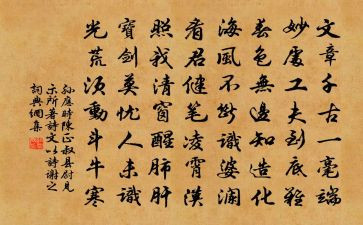 文章千古一毫端
妙處工夫到底難
春色無邊知造化
海風不斷識婆瀾
看君健筆凌霄漢
照我清窗醒肺肝
寶劍莫忱人未識
光荒須動斗牛寒
陳正叔县尉見
示所著詩文以詩謝之
詞典網集